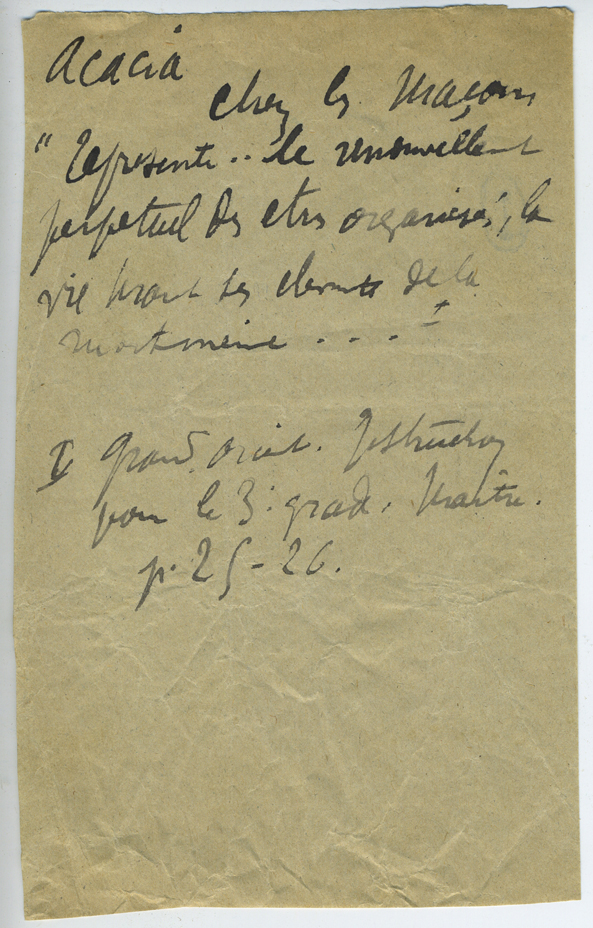 Acacia
chez les Maçons
"représente .. le renouvellement
perpétuel des êtres organisés, la
vie tirant ses éléments de la
mort même . . . . I
I Grand orient. Instruction
pour le 3e grade. Maître.
p. 25-26.